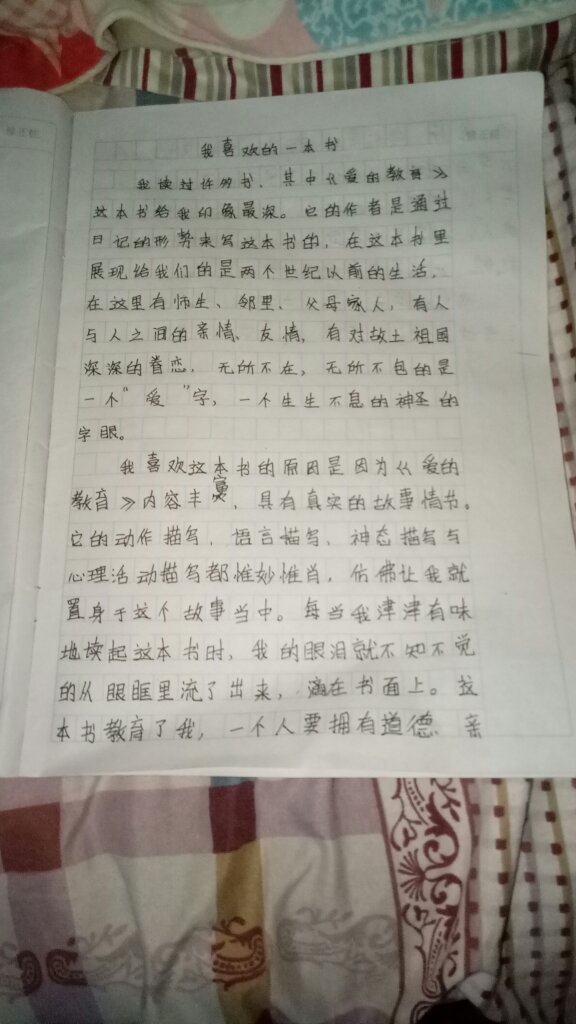 我喜欢的一本书
我读过许多书，其中《爱的教育》
这本书给我印象最深。它的作者是通过
日记的形势来写这本书的，在这本书里
展现给我们的是两个世纪以前的生活，
在这里有师生、邻里、父母家人，有人
与人之间的亲情、友情，有对故土祖国
深深的眷恋，无所不在，无所不包的是
一个“爱”字，一个生生不息的神圣的
字眼。
我喜欢这本书的原因是因为《爱的
教育》内容丰寞，具有真实的故事情节。
它的动作描写，语言描写，神态描写与
心理活动描写都惟妙惟肖，仿佛让我就
置身于这个故事当中。每当我津津有味
地读起这本书时，我的眼泪就不知不觉
的从眼眶里流了出来，滴在书面上。
本书教育了我，一个人要拥有道德、亲